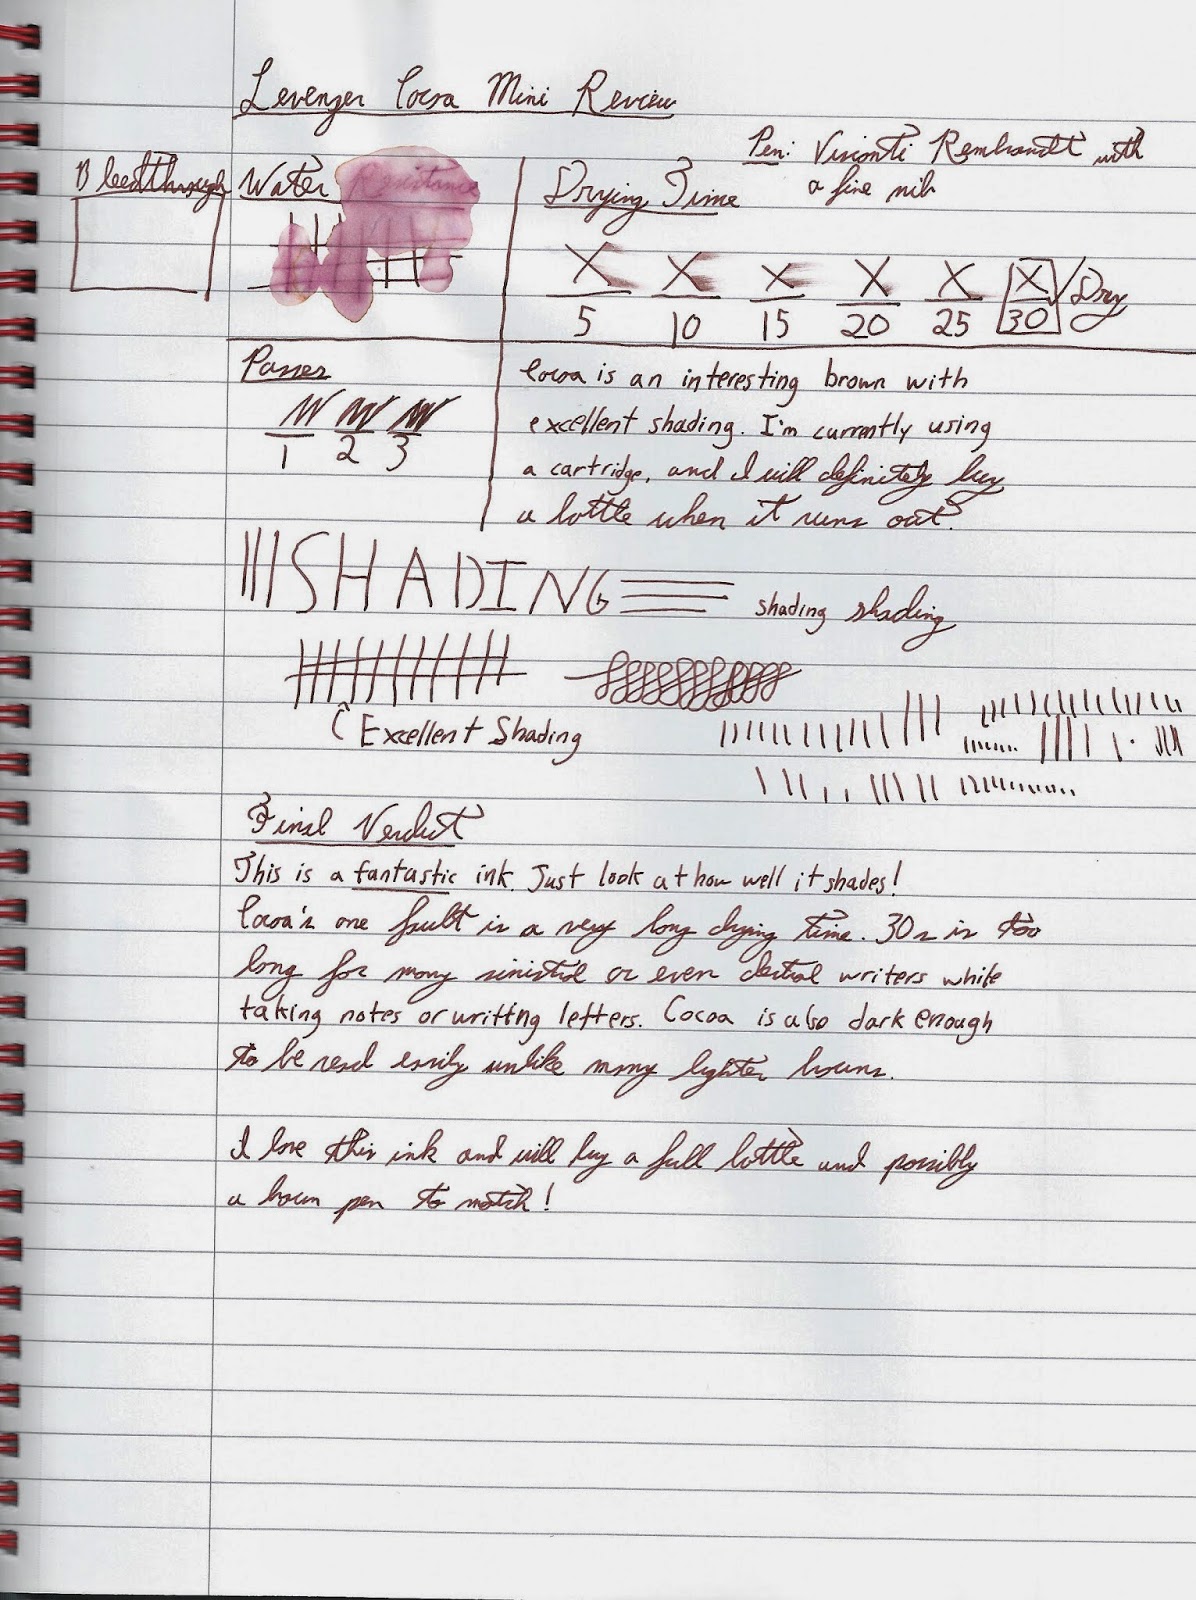 Levenger Cocoa Mini Review
Pen: Visconti Rembrandt with
a fine nib
Bleedthrough
Water Resistance
Drying Time
X X X X X X ✓Dry
5 10 15 20 25 30
Passes
1 2 3
Cocoa is an interesting brown with
excellent shading. I'm currently using
a cartridge, and I will definitely buy
a bottle when it runs out.
SHADING
shading shading
Excellent Shading
Final Verdict
This is a fantastic ink. Just look at how well it shades!
Cocoa's one fault is a very long drying time. 30s is too
long for many sinistral or even dextral writers while
taking notes or writtng letters. Cocoa is also dark enough
to be read easily unlike many lighter browns.
I love this ink and will buy a full bottle and possibly
a brown pen to match!